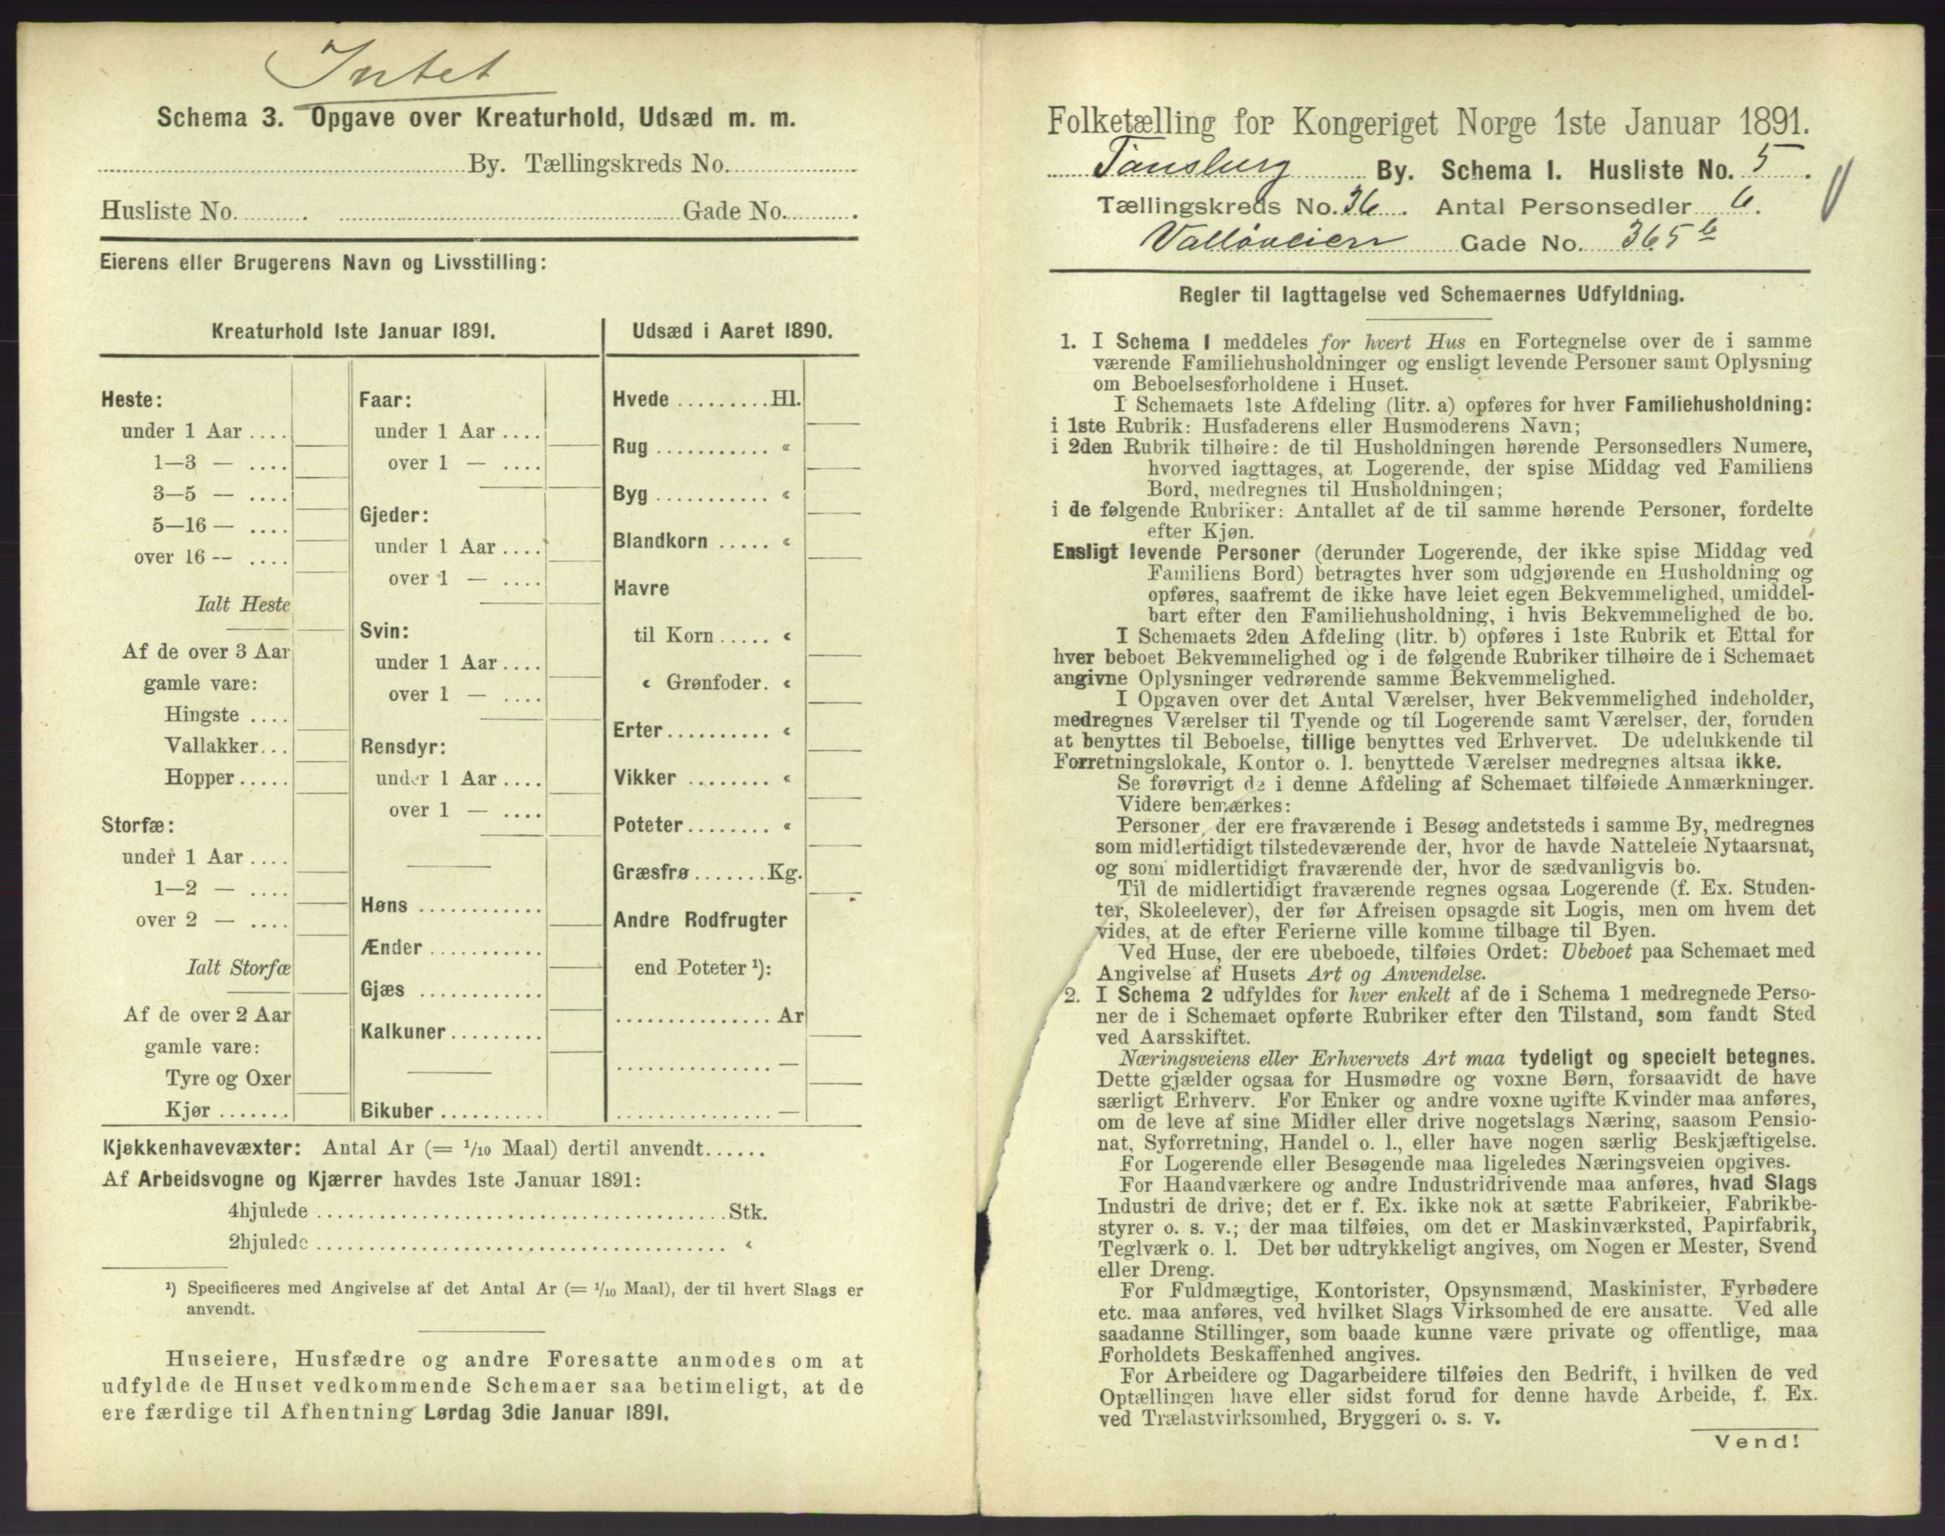 Intet
Schema 3. Opgave over Kreaturhold, Udsæd m. m.
By. Tællingskreds No.
Husliste No. Gade No.
Eierens eller Brugerens Navn og Livsstilling:
Kreaturhold 1ste Januar 1891.
Heste:
under 1 Aar
1—3 —
3—5 —
5—16 —
over 16 —
Ialt Heste
Af de over 3 Aar
gamle vare:
Hingste
Vallakker
Hopper
Storfæ:
under 1 Aar
1—2 —
over 2 —
Ialt Storfæ
Af de over 2 Aar
gamle vare:
Tyre og Oxer
Kjør
Faar:
under 1 Aar
over 1 —
Gjeder:
under 1 Aar
over 1 —
Svin:
under 1 Aar
over 1 —
Rensdyr:
under 1 Aar
over 1 —
Høns
Ænder
Gjæs
Kalkuner
Bikuber
Udsæd i Aaret 1890.
Hvede Hl.
Rug «
Byg «
Blandkorn «
Havre
til Korn «
« Grønfoder. «
Erter «
Vikker «
Poteter «
Græsfrø Kg.
Andre Rodfrugter
end Poteter ¹):
Ar
—
—
Kjøkkenhavevæxter: Antal Ar (= 1/10 Maal) dertil anvendt
Af Arbeidsvogne og Kjærrer havdes 1ste Januar 1891:
4hjulede Stk.
2hjulede «
¹) Specificeres med Angivelse af det Antal Ar (= 1/10 Maal), der til hvert Slags er
anvendt.
Huseiere, Husfædre og andre Foresatte anmodes om at
udfylde de Huset vedkommende Schemaer saa betimeligt, at de
ere færdige til Afhentning Lørdag 3die Januar 1891.
Folketælling for Kongeriget Norge 1ste Januar 1891.
Tønsberg By. Schema I. Husliste No. 5.
Tællingskreds No. 36. Antal Personsedler 6.
Valløveien Gade No. 365 b
Regler til Iagttagelse ved Schemaernes Udfyldning.
1. I Schema 1 meddeles for hvert Hus en Fortegnelse over de i samme
værende Familiehusholdninger og ensligt levende Personer samt Oplysning
om Beboelsesforholdene i Huset.
I Schemaets 1ste Afdeling (litr. a) opføres for hver Familiehusholdning:
i 1ste Rubrik: Husfaderens eller Husmoderens Navn;
i 2den Rubrik tilhøire: de til Husholdningen hørende Personsedlers Numere,
hvorved iagttages, at Logerende, der spise Middag ved Familiens
Bord, medregnes til Husholdningen;
i de følgende Rubriker: Antallet af de til samme hørende Personer, fordelte
efter Kjøn.
Ensligt levende Personer (derunder Logerende, der ikke spise Middag ved
Familiens Bord) betragtes hver som udgjørende en Husholdning og
opføres, saafremt de ikke have leiet egen Bekvemmelighed, umiddel-
bart efter den Familiehusholdning, i hvis Bekvemmelighed de bo.
I Schemaets 2den Afdeling (litr. b) opføres i 1ste Rubrik et Ettal for
hver beboet Bekvemmelighed og i de følgende Rubriker tilhøire de i Schemaet
angivne Oplysninger vedrørende samme Bekvemmelighed.
I Opgaven over det Antal Værelser, hver Bekvemmelighed indeholder,
medregnes Værelser til Tyende og til Logerende samt Værelser, der, foruden
at benyttes til Beboelse, tillige benyttes ved Erhvervet. De udelukkende til
Forretningslokale, Kontor o. l. benyttede Værelser medregnes altsaa ikke.
Se forøvrigt de i denne Afdeling af Schemaet tilføiede Anmærkninger.
Videre bemærkes:
Personer, der ere fraværende i Besøg andetsteds i samme By, medregnes
som midlertidigt tilstedeværende der, hvor de havde Natteleie Nytaarsnat,
og som midlertidigt fraværende der, hvor de sædvanligvis bo.
Til de midlertidigt fraværende regnes ogsaa Logerende (f. Ex. Studen-
ter, Skoleelever), der før Afreisen opsagde sit Logis, men om hvem det
vides, at de efter Ferierne ville komme tilbage til Byen.
Ved Huse, der ere ubeboede, tilføies Ordet: Ubeboet paa Schemaet med
Angivelse af Husets Art og Anvendelse.
2. I Schema 2 udfyldes for hver enkelt af de i Schema 1 medregnede Perso-
ner de i Schemaet opførte Rubriker efter den Tilstand, som fandt Sted
ved Aarsskiftet.
Næringsveiens eller Erhvervets Art maa tydeligt og specielt betegnes.
Dette gjælder ogsaa for Husmødre og voxne Børn, forsaavidt de have
særligt Erhverv. For Enker og andre voxne ugifte Kvinder maa anføres,
om de leve af sine Midler eller drive nogetslags Næring, saasom Pensio-
nat, Syforretning, Handel o. l., eller have nogen særlig Beskjæftigelse.
For Logerende eller Besøgende maa ligeledes Næringsveien opgives.
For Haandværkere og andre Industridrivende maa anføres, hvad Slags
Industri de drive; det er f. Ex. ikke nok at sætte Fabrikeier, Fabrikbe-
styrer o. s. v.; der maa tilføies, om det er Maskinværksted, Papirfabrik,
Teglværk o. l. Det bør udtrykkeligt angives, om Nogen er Mester, Svend
eller Dreng.
For Fuldmægtige, Kontorister, Opsynsmænd, Maskinister, Fyrbødere
etc. maa anføres, ved hvilket Slags Virksomhed de ere ansatte. Ved alle
saadanne Stillinger, som baade kunne være private og offentlige, maa
Forholdets Beskaffenhed angives.
For Arbeidere og Dagarbeidere tilføies den Bedrift, i hvilken de ved
Optællingen have eller sidst forud for denne havde Arbeide, f. Ex.
ved Trælastvirksomhed, Bryggeri o. s. v.
Vend!